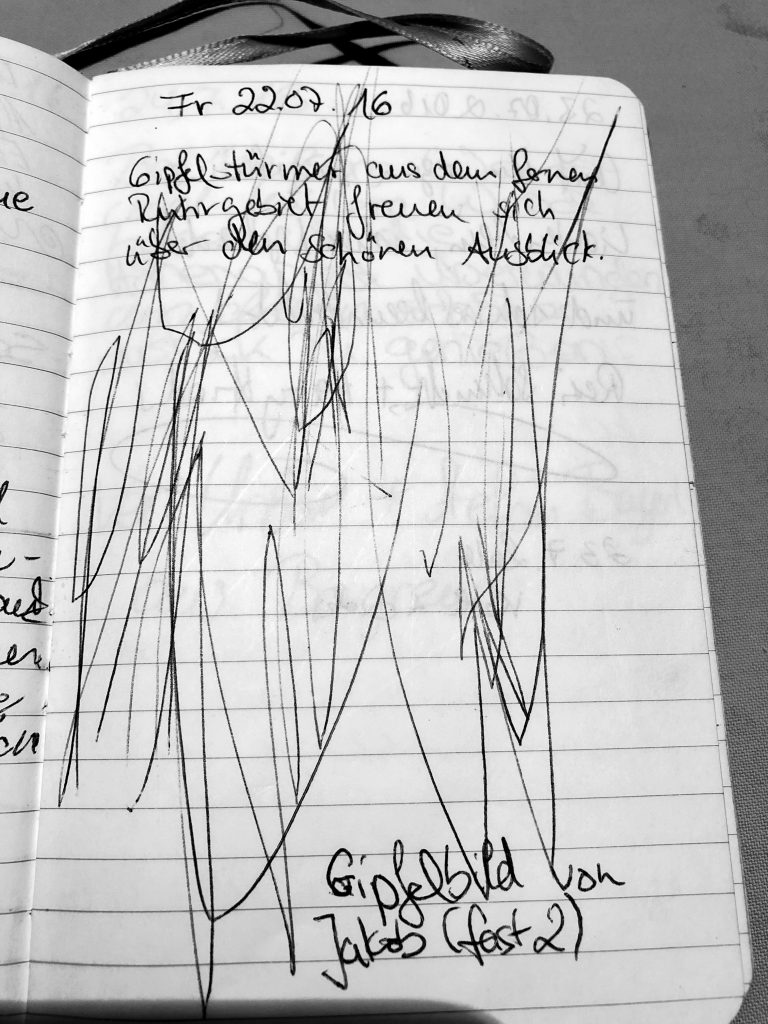 ue
Fr 22.07.16
Gipfelstürmer aus dem fernen
Ruhrgebiet freuen sich
über den schönen Ausblick.
Gipfelbild von
Jakob (fast 2)